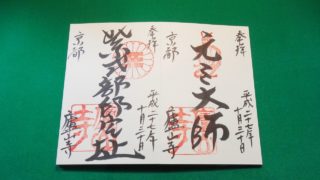 奉拝
京都
元三大師
平成二十七年
十月三十日
廬山寺
奉拝
京都
紫式部邸宅址
平成二十七年
十月三十日
廬山寺